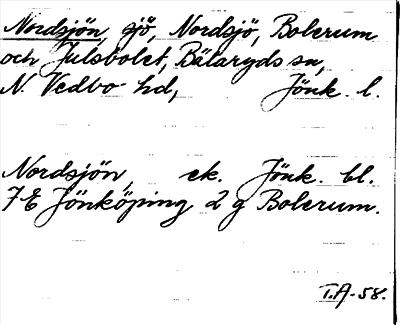 Nordsjön, sjö, Nordsjö, Bolerum
och Julsbolet, Bälaryds sn,
N. Vedbo hd, Jönk. l.
Nordsjön, ek. Jönk. bl.
7E Jönköping 2 g Bolerum.
T.A-58.